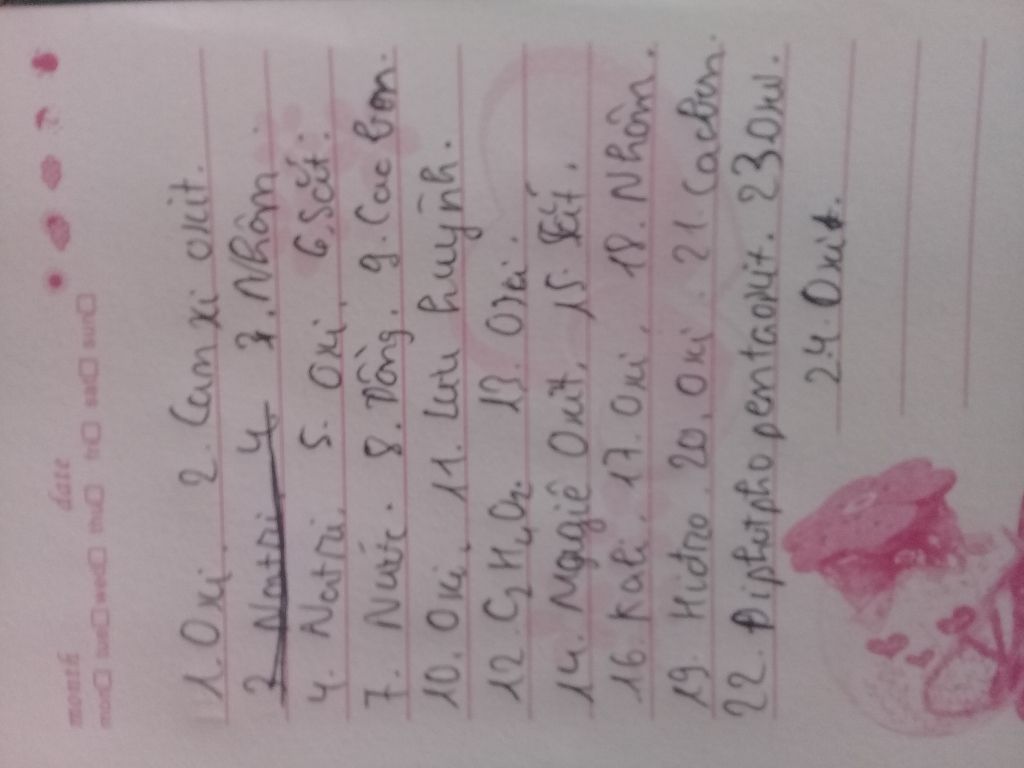 month date
mon tue wed thu fri sat sun
1. Oxi. 2. Canxi oxit.
3 Natri 4 3. Nhôm.
4. Natri. 5. Oxi. 6. Sắt.
7. Nước. 8. Đồng. 9. Cac bon.
10. Oxi. 11. Lưu huỳnh.
12. C₂H₄O₂. 13. Ozi.
14. Magiê Oxit. 15. Sắt.
16. Kali. 17. Oxi. 18. Nhôm.
19. Hidro. 20. Oxi. 21. Cacbon.
22. Điphotpho pentaoxit. 23 Oxi.
24. Oxit.